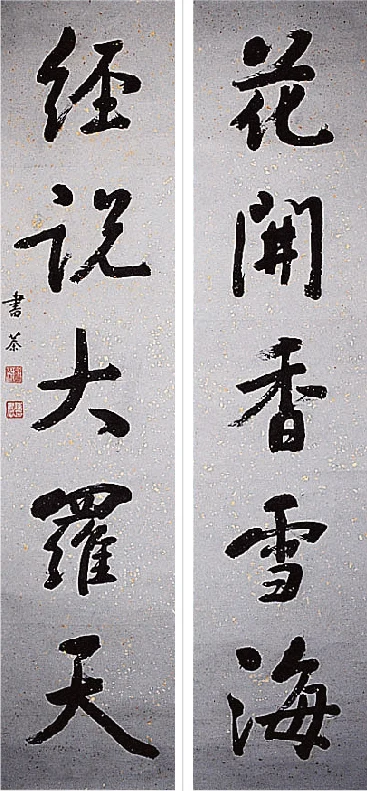 花開香雪海
經說大羅天
書荼